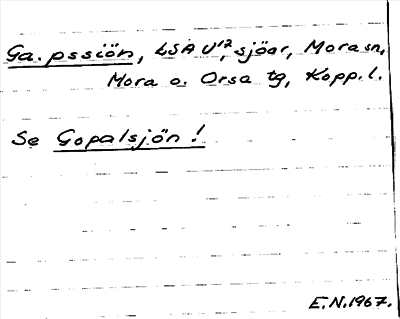 Ga.pssiön, LSA U¹², sjöar, Mora sn,
Mora o. Orsa tg, Kopp. l.
Se Gopalsjön!
E.N.1967.